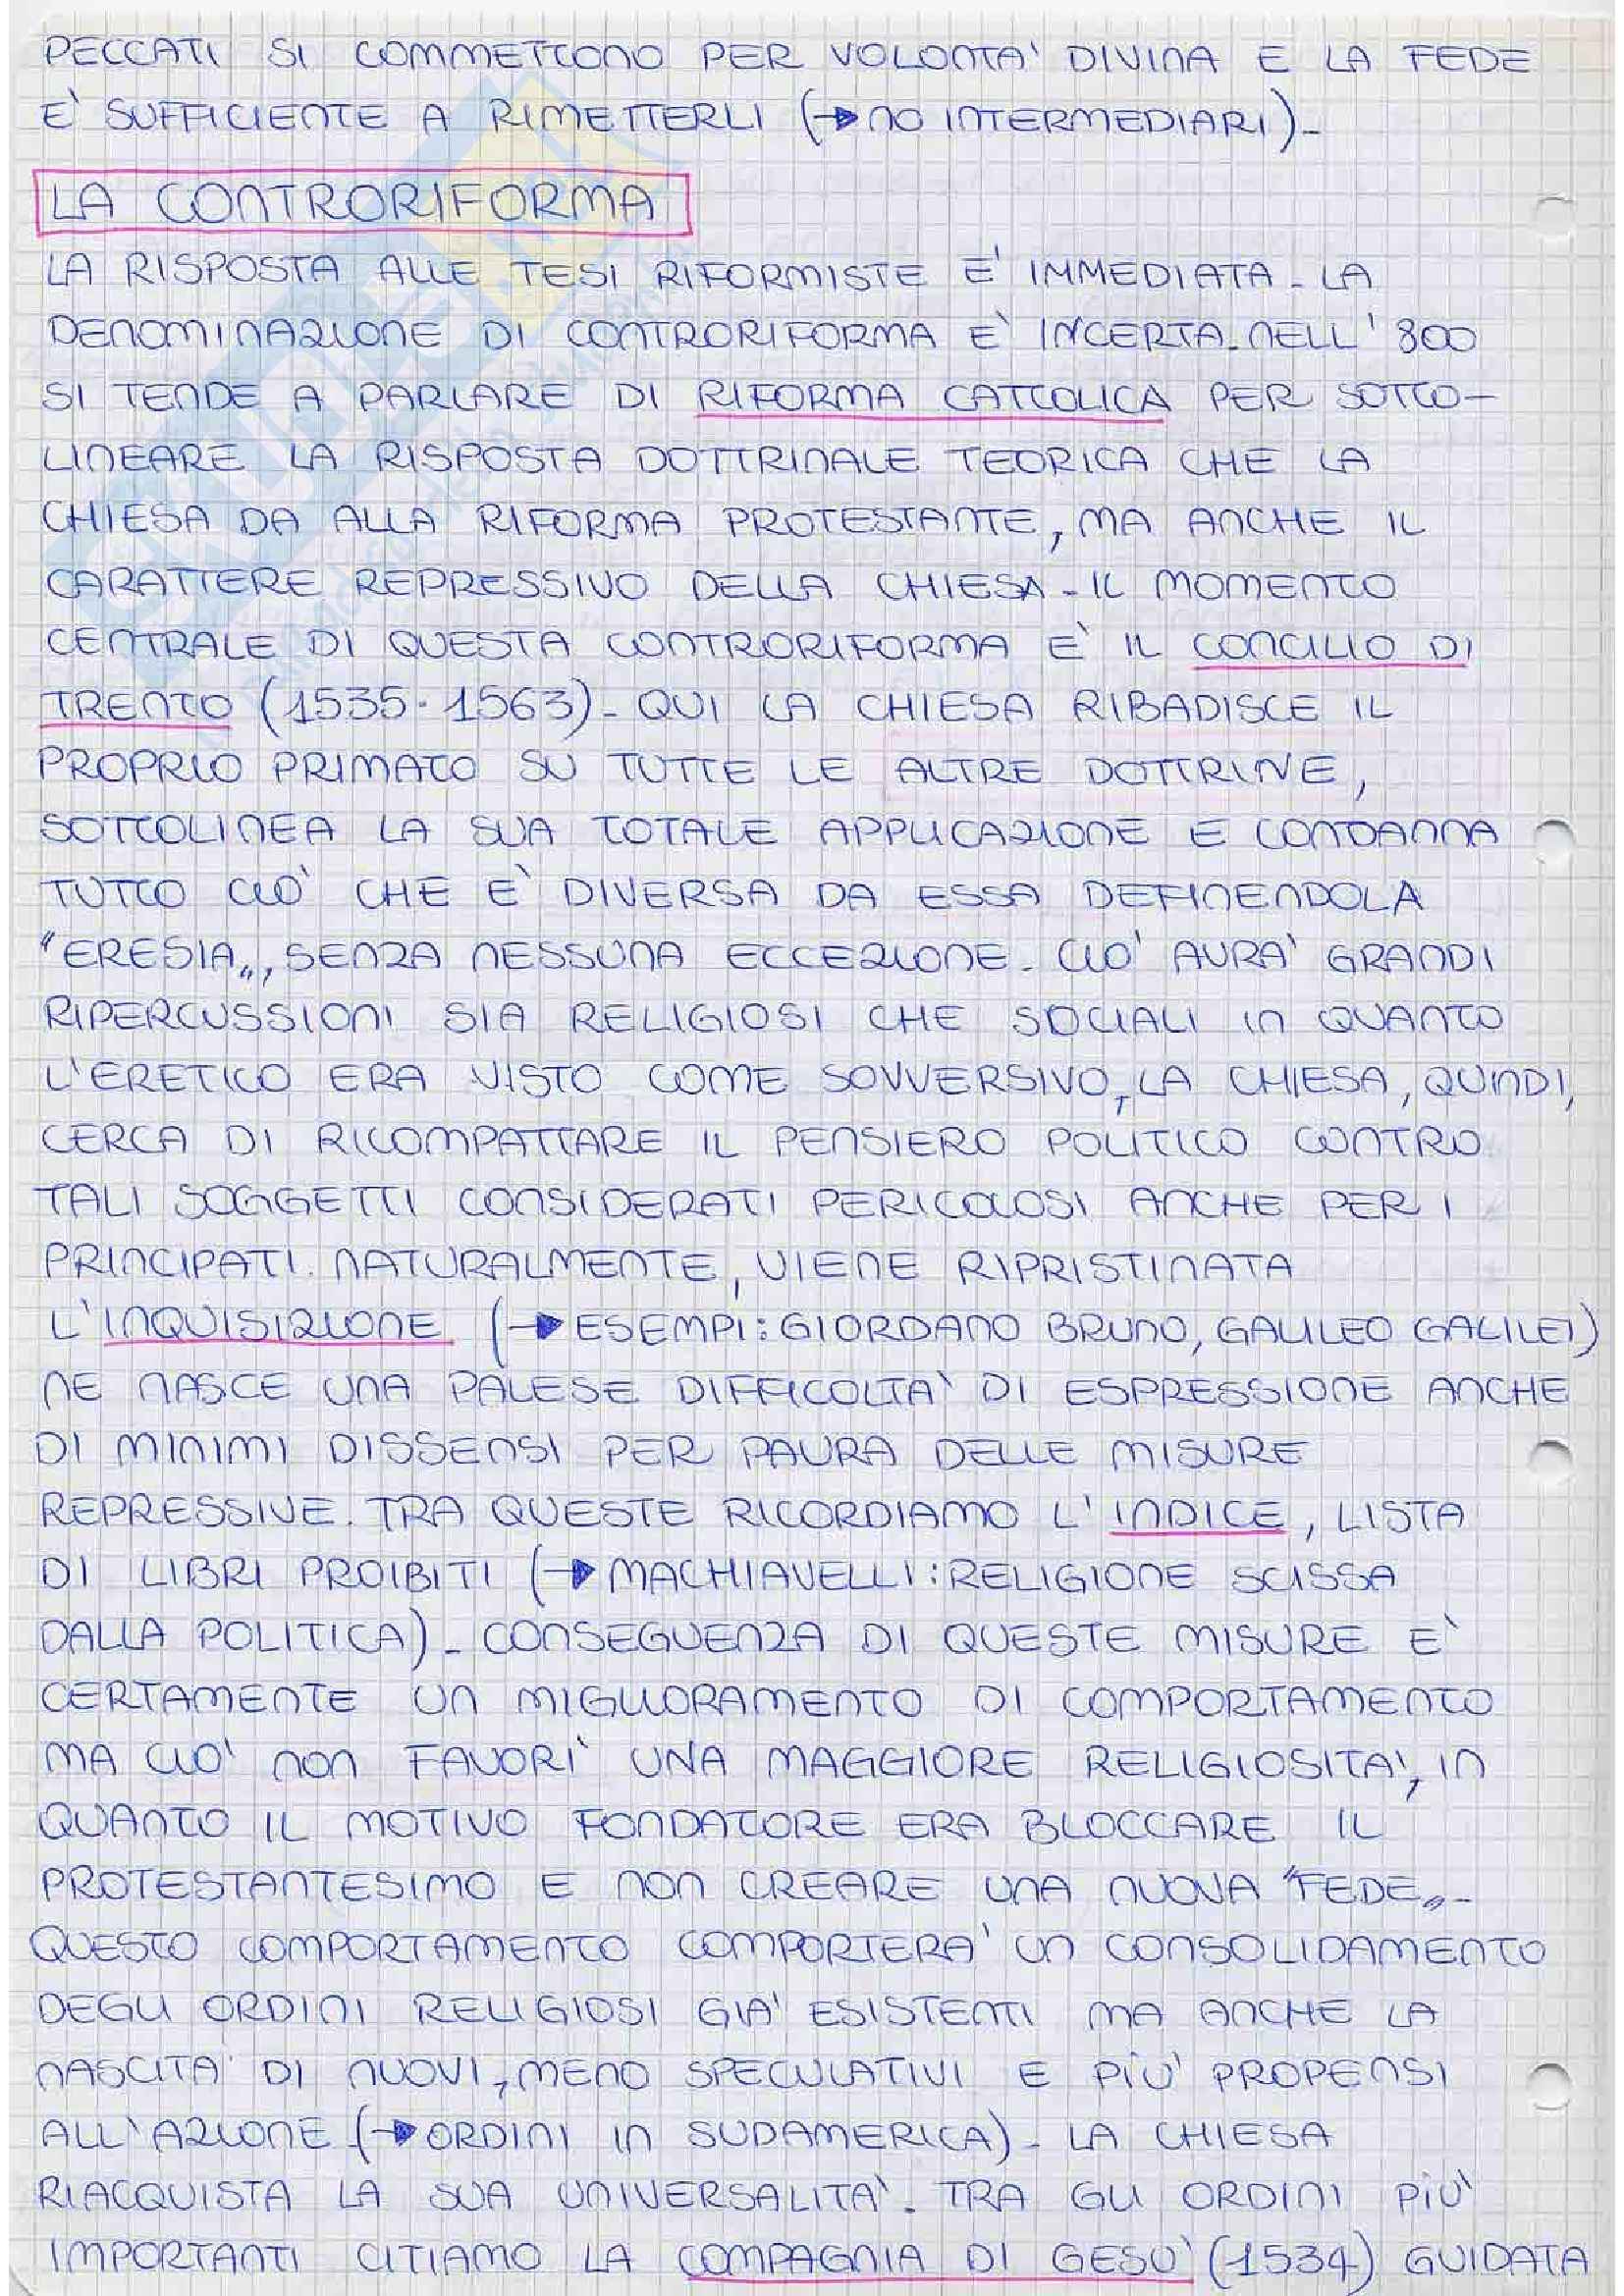 PECCATI SI COMMETTONO PER VOLONTA' DIVINA E LA FEDE
E' SUFFICIENTE A RIMETTERLI (→ NO INTERMEDIARI)-
LA CONTRORIFORMA
LA RISPOSTA ALLE TESI RIFORMISTE E' IMMEDIATA - LA
DENOMINAZIONE DI CONTRORIFORMA E' INCERTA - NELL' 800
SI TENDE A PARLARE DI RIFORMA CATTOLICA PER SOTTO-
LINEARE LA RISPOSTA DOTTRINALE TEORICA CHE LA
CHIESA DA ALLA RIFORMA PROTESTANTE, MA ANCHE IL
CARATTERE REPRESSIVO DELLA CHIESA - IL MOMENTO
CENTRALE DI QUESTA CONTRORIFORMA E' IL CONCILIO DI
TRENTO (1535-1563) - QUI LA CHIESA RIBADISCE IL
PROPRIO PRIMATO SU TUTTE LE ALTRE DOTTRINE,
SOTTOLINEA LA SUA TOTALE APPLICAZIONE E CONDANNA
TUTTO CIO' CHE E' DIVERSA DA ESSA DEFINENDOLA
"ERESIA„, SENZA NESSUNA ECCEZIONE - CIO' AVRA' GRANDI
RIPERCUSSIONI SIA RELIGIOSI CHE SOCIALI IN QUANTO
L'ERETICO ERA VISTO COME SOVVERSIVO, LA CHIESA, QUINDI,
CERCA DI RICOMPATTARE IL PENSIERO POLITICO CONTRO
TALI SOGGETTI CONSIDERATI PERICOLOSI ANCHE PER I
PRINCIPATI. NATURALMENTE, VIENE RIPRISTINATA
L'INQUISIZIONE (→ ESEMPI: GIORDANO BRUNO, GALILEO GALILEI)
NE NASCE UNA PALESE DIFFICOLTA' DI ESPRESSIONE ANCHE
DI MINIMI DISSENSI PER PAURA DELLE MISURE
REPRESSIVE. TRA QUESTE RICORDIAMO L'INDICE, LISTA
DI LIBRI PROIBITI (→ MACHIAVELLI: RELIGIONE SCISSA
DALLA POLITICA) - CONSEGUENZA DI QUESTE MISURE E'
CERTAMENTE UN MIGLIORAMENTO DI COMPORTAMENTO
MA CIO' NON FAVORI' UNA MAGGIORE RELIGIOSITA', IN
QUANTO IL MOTIVO FONDATORE ERA BLOCCARE IL
PROTESTANTESIMO E NON CREARE UNA NUOVA "FEDE„-
QUESTO COMPORTAMENTO COMPORTERA' UN CONSOLIDAMENTO
DEGLI ORDINI RELIGIOSI GIA' ESISTENTI MA ANCHE LA
NASCITA' DI NUOVI, MENO SPECULATIVI E PIU' PROPENSI
ALL'AZIONE (→ ORDINI IN SUDAMERICA) - LA CHIESA
RIACQUISTA LA SUA UNIVERSALITA'. TRA GLI ORDINI PIU'
IMPORTANTI CITIAMO LA COMPAGNIA DI GESU' (1534) GUIDATA